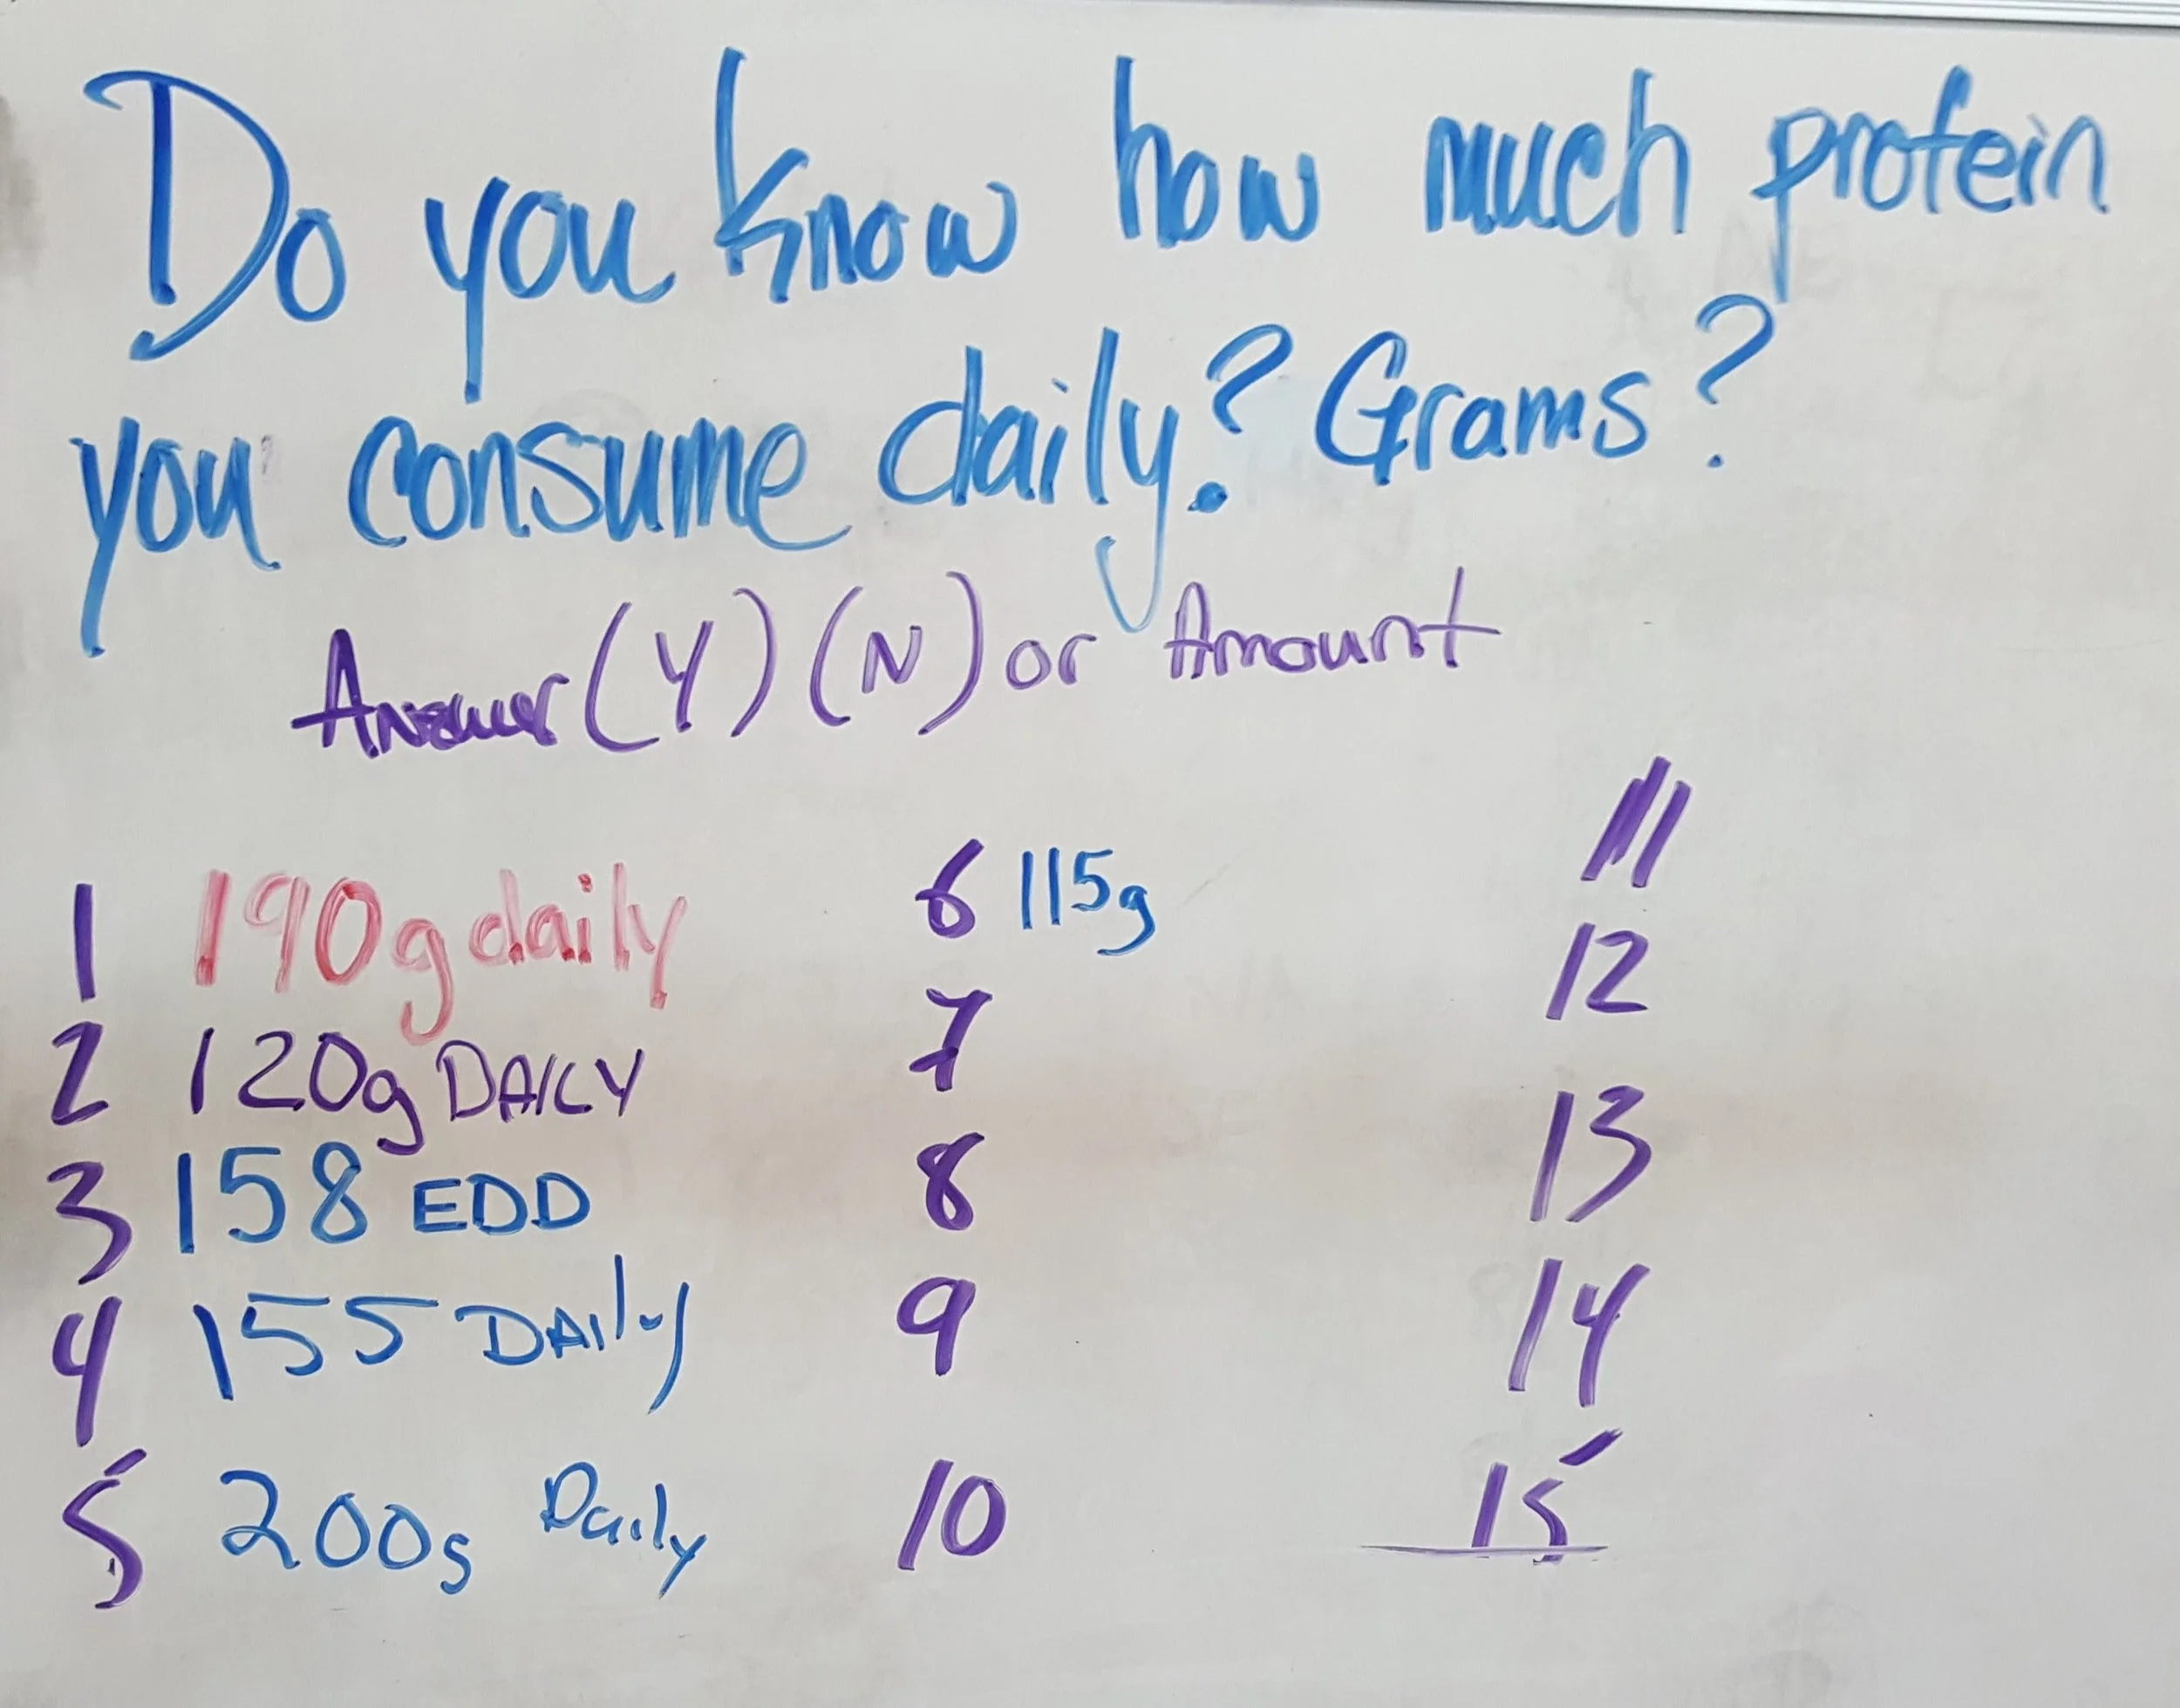 Do you know how much protein
you consume daily? Grams?
Answer (Y) (N) or Amount
1 190g daily
2 120g DAILY
3 158 EDD
4 155 DAily
5 200g Daily
6 115g
7
8
9
10
11
12
13
14
15